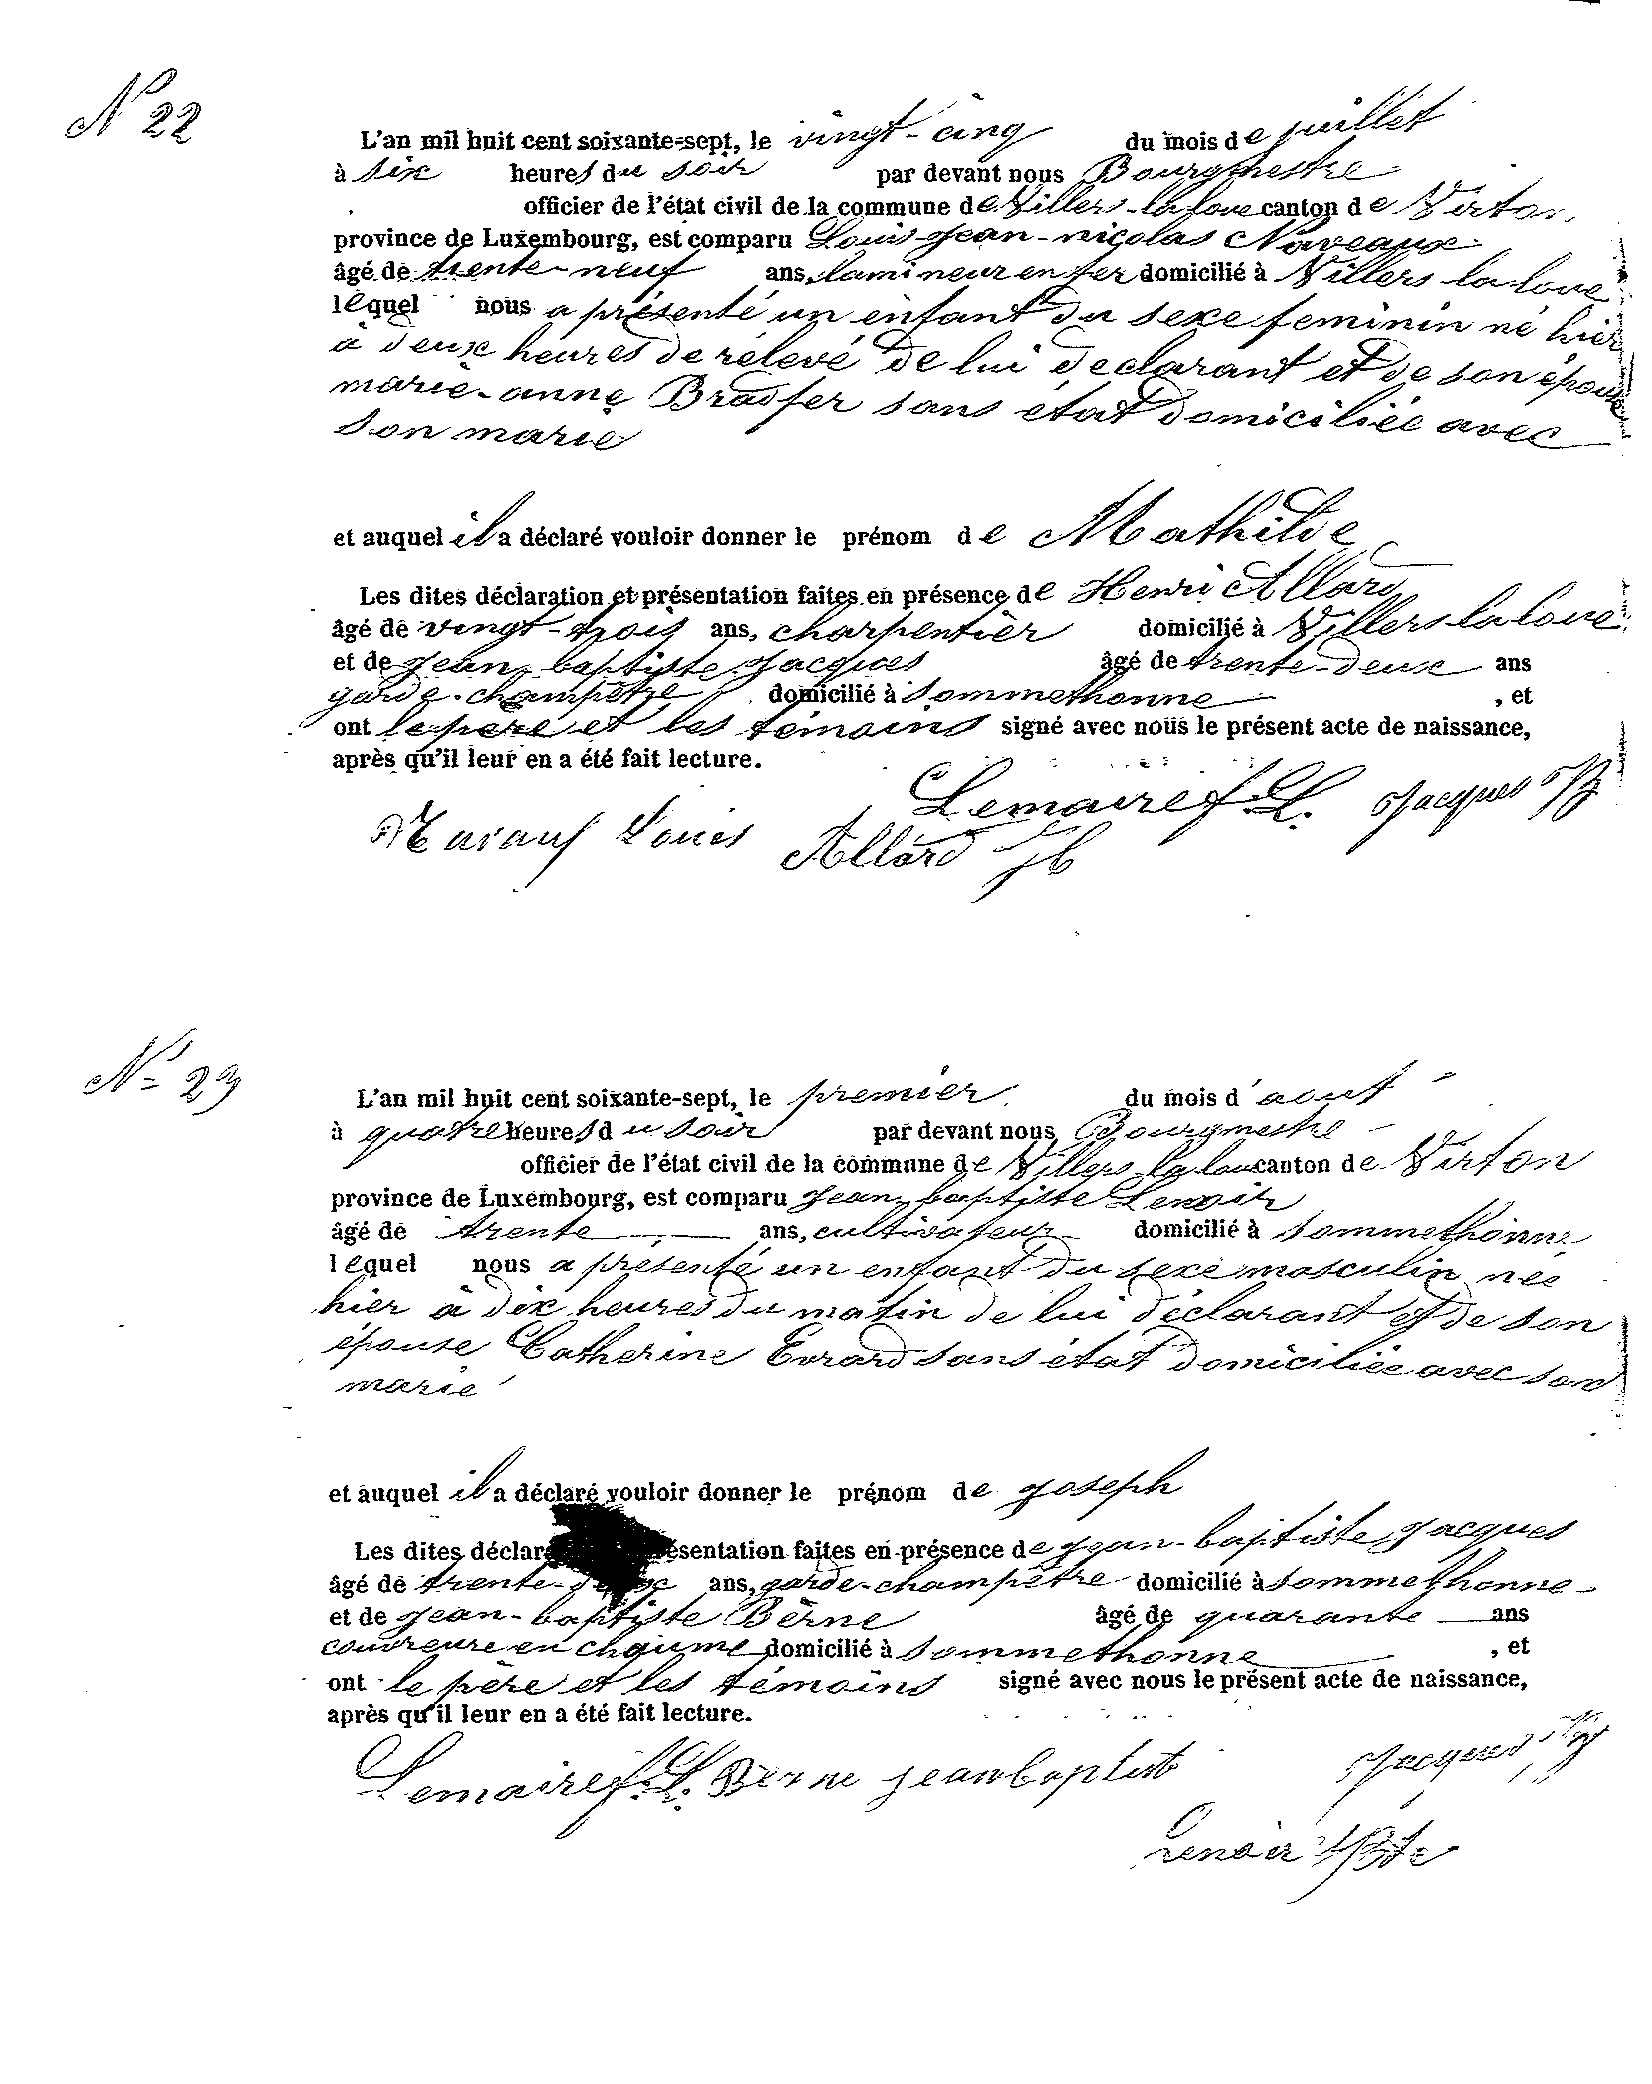 N 22
L'an mil huit cent soixante-sept, le vingt-cinq du mois de juillet
à six heures du soir par devant nous Bourgmestre
officier de l'état civil de la commune de Villers-la loue canton de Virton,
province de Luxembourg, est comparu Louis-Jean-nicolas Naveaux
âgé de trente-neuf ans, lamineur en fer domicilié à Villers la loue
lequel nous a présenté un enfant du sexe feminin né hier
à deux heures de relevé de lui declarant et de son épouse
marie-anne Bradfer sans état domiciliée avec
son marie
et auquel il a déclaré vouloir donner le prénom de Mathilde
Les dites déclaration et présentation faites en présence de Henri Allard
âgé de vingt-trois ans, charpentier domicilié à Villers la loue
et de Jean-baptiste Jacques âgé de trente-deux ans
garde-champêtre domicilié à Sommethonne , et
ont le père et les témoins signé avec nous le présent acte de naissance,
après qu'il leur en a été fait lecture.
Lemaire f. L. Jacques JB
Louis Allard
N- 23
L'an mil huit cent soixante-sept, le premier du mois d'aout
à quatre heures du soir par devant nous Bourgmestre
officier de l'état civil de la commune de Villers-la loue canton de Virton
province de Luxembourg, est comparu Jean-baptiste Lenoir
âgé de trente ans, cultivateur domicilié à Sommethonne
lequel nous a présenté un enfant du sexe masculin née
hier à dix heures du matin de lui déclarant et de son
épouse Catherine Evrard sans état domiciliée avec son
marie
et auquel il a déclaré vouloir donner le prénom de Joseph
Les dites déclar ésentation faites en présence de Jean-baptiste Jacques
âgé de trente-deux ans, garde-champêtre domicilié à Sommethonne
et de Jean-baptiste Bèrne âgé de quarante ans
couvreure en chaume domicilié à Sommethonne , et
ont le père et les témoins signé avec nous le présent acte de naissance,
après qu'il leur en a été fait lecture.
Lemaire f. L. Berne jean baptist Jacques JB
Lenoir JBte